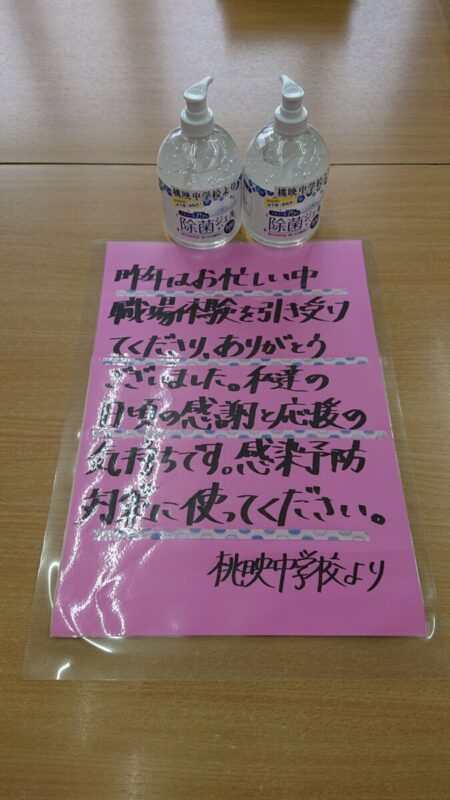 桃映中学校より
除菌ジェル
桃映中学校より
除菌ジェル
昨年はお忙しい中
職場体験を引き受け
てくださり、ありがとう
ございました。私達の
日頃の感謝と応援の
気持ちです。感染予防
対策に使ってください。
桃映中学校より